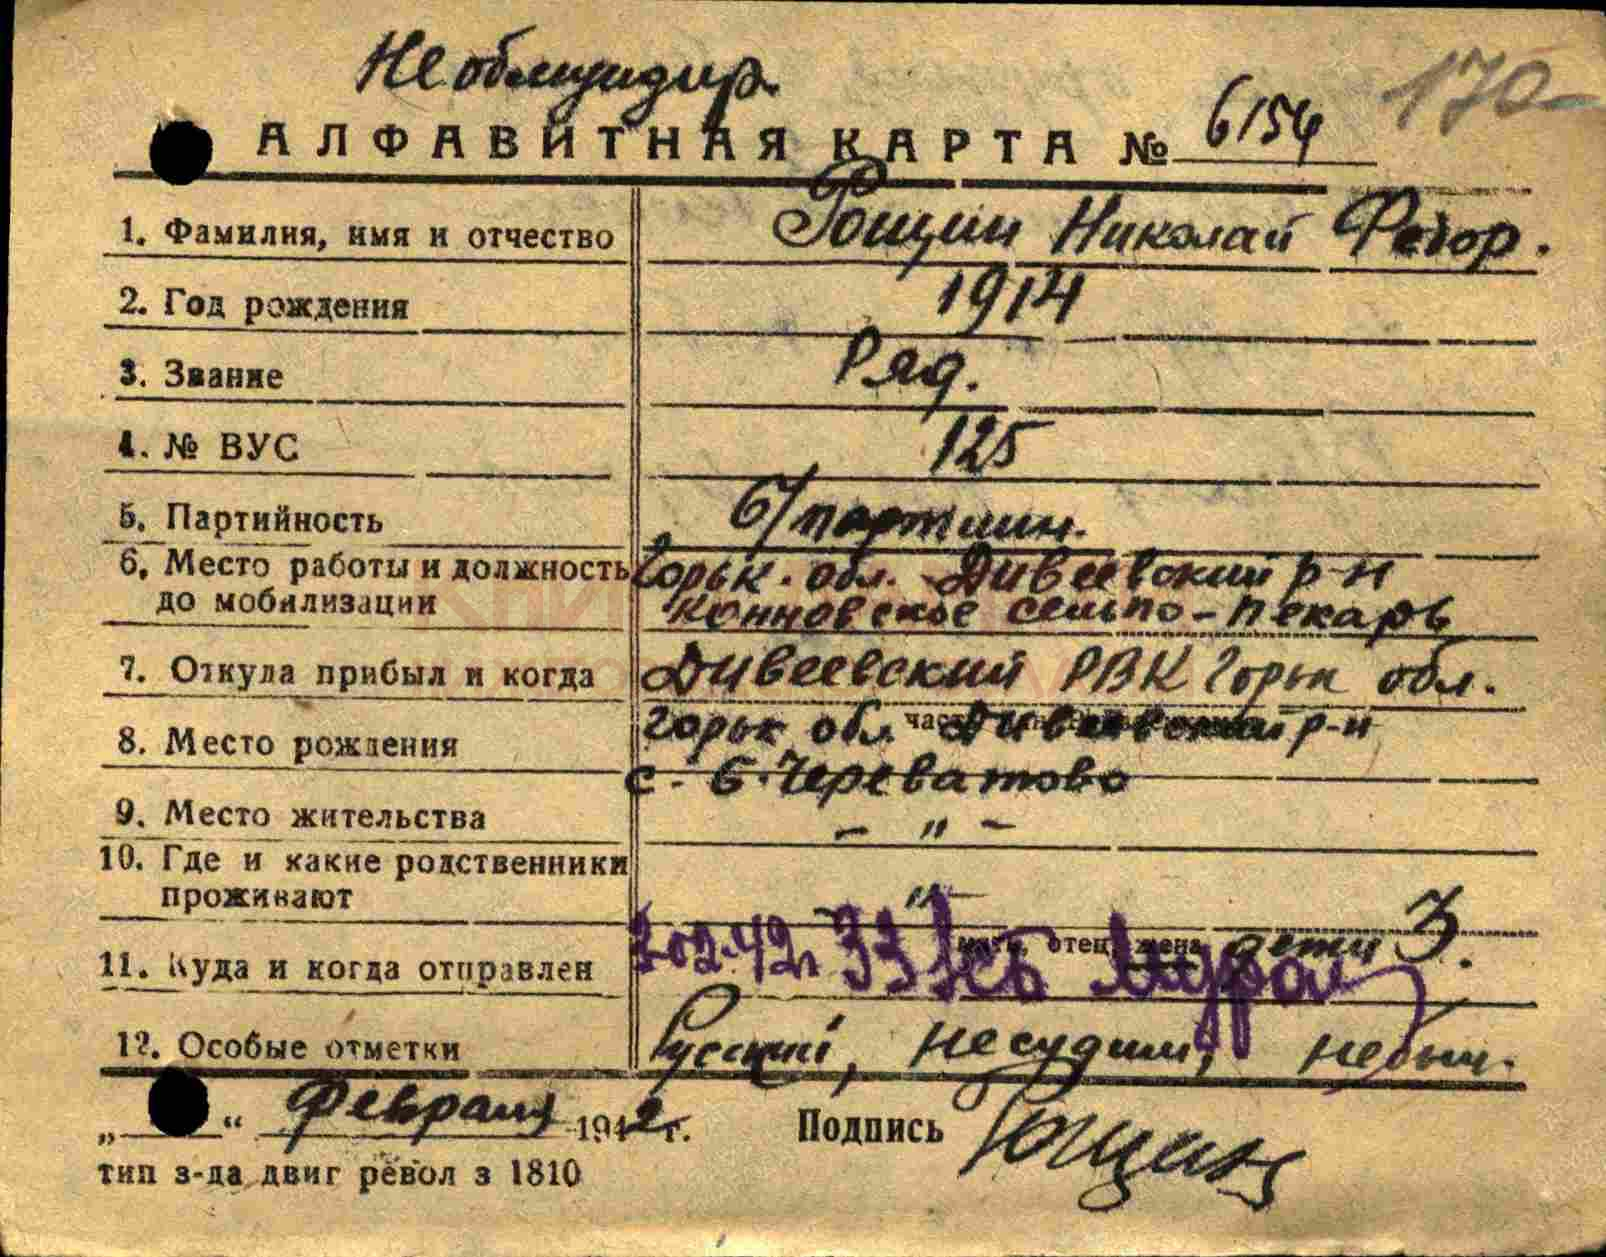 Не обмундир.
170-
АЛФАВИТНАЯ КАРТА № 6154
1. Фамилия, имя и отчество Рощин Николай Федор.
2. Год рождения 1914
3. Звание Ряд.
4. № ВУС 125
5. Партийность б/партийн.
6. Место работы и должность Горьк. обл. Дивеевский р-н
до мобилизации сельпо - пекарь
7. Откуда прибыл и когда Дивеевский РВК Горьк обл.
8. Место рождения Горьк обл. Дивеевский р-н
с. Б. Череватово
9. Место жительства - " -
10. Где и какие родственники
проживают - " -
мать, отец, жена дети 3.
11. Куда и когда отправлен 3-02-42г. 33 Муром
12. Особые отметки Русский, не судим,
„ “ Февраля 1942 г. Подпись Рощин
тип з-да двиг револ з 1810